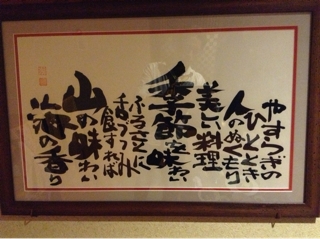 やすらぎの
ひととき
人のぬくもり
美しい料理
季節を味わい
ふるさとに
食すれば
山の味わい
海の香り